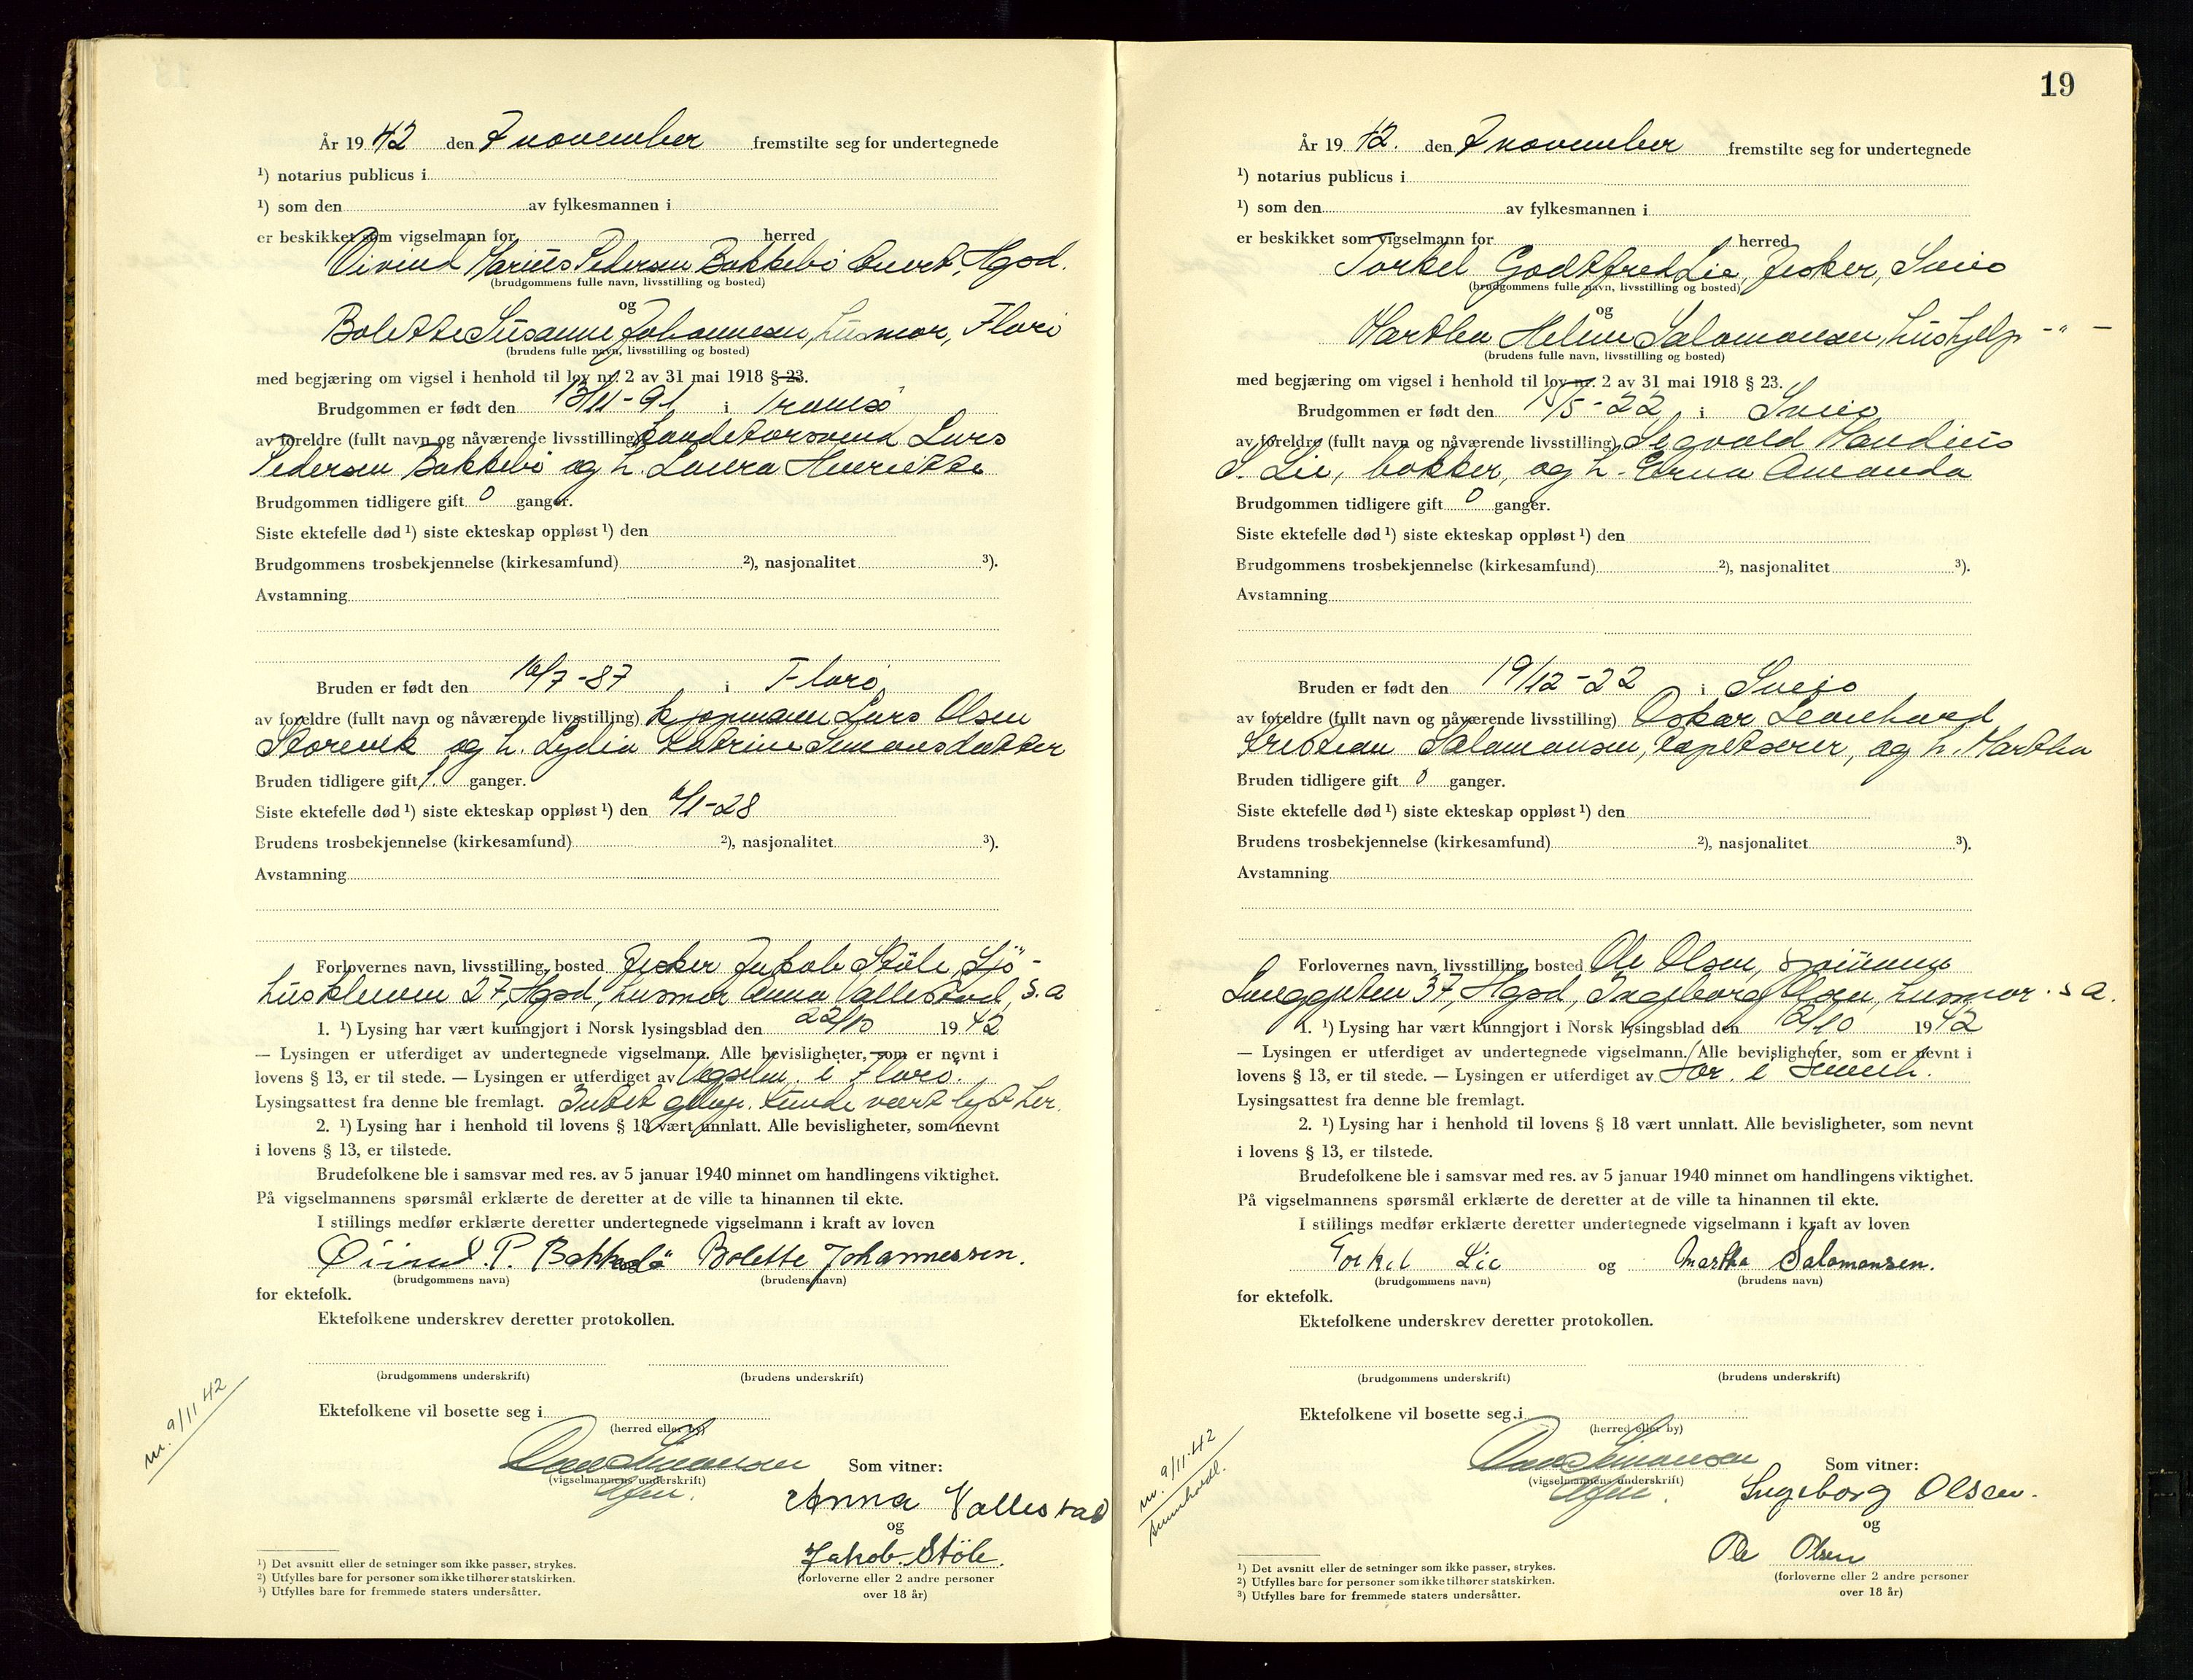 År 19 42 den 7 november fremstilte seg for undertegnede
¹) notarius publicus i
¹) som den av fylkesmannen i
er beskikket som vigselmann for herred
Öivind Marius Pedersen Bakkebö Hgsd.
(brudgommens fulle navn, livsstilling og bosted)
og
Bolette Susanne Johannesen, husmor, Florö
(brudens fulle navn, livsstilling og bosted)
med begjæring om vigsel i henhold til lov nr. 2 av 31 mai 1918 § 23.
Brudgommen er født den 13/11-91 i Tromsö
av foreldre (fullt navn og nåværende livsstilling) Lars
Pedersen Bakkebö og h. Laura Henriette
Brudgommen tidligere gift 0 ganger.
Siste ektefelle død ¹) siste ekteskap oppløst ¹) den
Brudgommens trosbekjennelse (kirkesamfund) ²), nasjonalitet ³).
Avstamning
Bruden er født den 16/7-87 i Florö
av foreldre (fullt navn og nåværende livsstilling) kjøpmann Lars Olsen
Storevik og h. Lydia Katrine Simonsdatter
Bruden tidligere gift 1. ganger.
Siste ektefelle død ¹) siste ekteskap oppløst ¹) den 6/1-28
Brudens trosbekjennelse (kirkesamfund) ²), nasjonalitet ³).
Avstamning
Forlovernes navn, livsstilling, bosted Fisker Jakob Støle, Sjö-
27, Hgsd, husmor Anna Vallestad, s.a
1. ¹) Lysing har vært kunngjort i Norsk lysingsblad den 22/10 19 42
— Lysingen er utferdiget av undertegnede vigselmann. Alle bevisligheter, som er nevnt i
lovens § 13, er til stede. — Lysingen er utferdiget av Vigselm. i Florö.
Lysingsattest fra denne ble fremlagt. Intet kunde vært lyst her.
2. ¹) Lysing har i henhold til lovens § 18 vært unnlatt. Alle bevisligheter, som nevnt
i lovens § 13, er tilstede.
Brudefolkene ble i samsvar med res. av 5 januar 1940 minnet om handlingens viktighet.
På vigselmannens spørsmål erklærte de deretter at de ville ta hinannen til ekte.
I stillings medfør erklærte deretter undertegnede vigselmann i kraft av loven
Öivind. P. Bakkebö Bolette Johannessen.
(brudgommens navn) (brudens navn)
for ektefolk.
Ektefolkene underskrev deretter protokollen.
(brudgommens underskrift) (brudens underskrift)
Ektefolkene vil bosette seg i
(herred eller by)
m. 9/11 42
Simonsen Som vitner:
(vigselmannens underskrift)
Anna Vallestad
og
Jakob. Støle.
(forloverne eller 2 andre personer
over 18 år)
¹) Det avsnitt eller de setninger som ikke passer, strykes.
²) Utfylles bare for personer som ikke tilhører statskirken.
³) Utfylles bare for fremmede staters undersåtter.
19
År 19 42. den 7 november fremstilte seg for undertegnede
¹) notarius publicus i
¹) som den av fylkesmannen i
er beskikket som vigselmann for herred
Torkel Godtfred Lie, fisker, Sveio
(brudgommens fulle navn, livsstilling og bosted)
og
Martha Helene Salomonsen, hushjelp -"-
(brudens fulle navn, livsstilling og bosted)
med begjæring om vigsel i henhold til lov nr. 2 av 31 mai 1918 § 23.
Brudgommen er født den 15/5-22 i Sveio
av foreldre (fullt navn og nåværende livsstilling) Sigvald
S. Lie, og h. Erna Amanda
Brudgommen tidligere gift 0 ganger.
Siste ektefelle død ¹) siste ekteskap oppløst ¹) den
Brudgommens trosbekjennelse (kirkesamfund) ²), nasjonalitet ³).
Avstamning
Bruden er født den 19/12-22 i Sveio
av foreldre (fullt navn og nåværende livsstilling) Oskar Leonhard
Kristian Salomonsen, tapetserer, og h. Martha
Bruden tidligere gift 0 ganger.
Siste ektefelle død ¹) siste ekteskap oppløst ¹) den
Brudens trosbekjennelse (kirkesamfund) ²), nasjonalitet ³).
Avstamning
Forlovernes navn, livsstilling, bosted Ole Olsen,
37, Hgsd, Ingeborg Olsen, husmor. s a.
1. ¹) Lysing har vært kunngjort i Norsk lysingsblad den 12/10 19 42
— Lysingen er utferdiget av undertegnede vigselmann. Alle bevisligheter, som er nevnt i
lovens § 13, er til stede. — Lysingen er utferdiget av i
Lysingsattest fra denne ble fremlagt.
2. ¹) Lysing har i henhold til lovens § 18 vært unnlatt. Alle bevisligheter, som nevnt
i lovens § 13, er tilstede.
Brudefolkene ble i samsvar med res. av 5 januar 1940 minnet om handlingens viktighet.
På vigselmannens spørsmål erklærte de deretter at de ville ta hinannen til ekte.
I stillings medfør erklærte deretter undertegnede vigselmann i kraft av loven
Torkel Lie og Martha Salomonsen.
(brudgommens navn) (brudens navn)
for ektefolk.
Ektefolkene underskrev deretter protokollen.
(brudgommens underskrift) (brudens underskrift)
Ektefolkene vil bosette seg i
(herred eller by)
m. 9/11.42
Simonsen Som vitner:
(vigselmannens underskrift)
Ingeborg Olsen.
og
Ole Olsen
(forloverne eller 2 andre personer
over 18 år)
¹) Det avsnitt eller de setninger som ikke passer, strykes.
²) Utfylles bare for personer som ikke tilhører statskirken.
³) Utfylles bare for fremmede staters undersåtter.